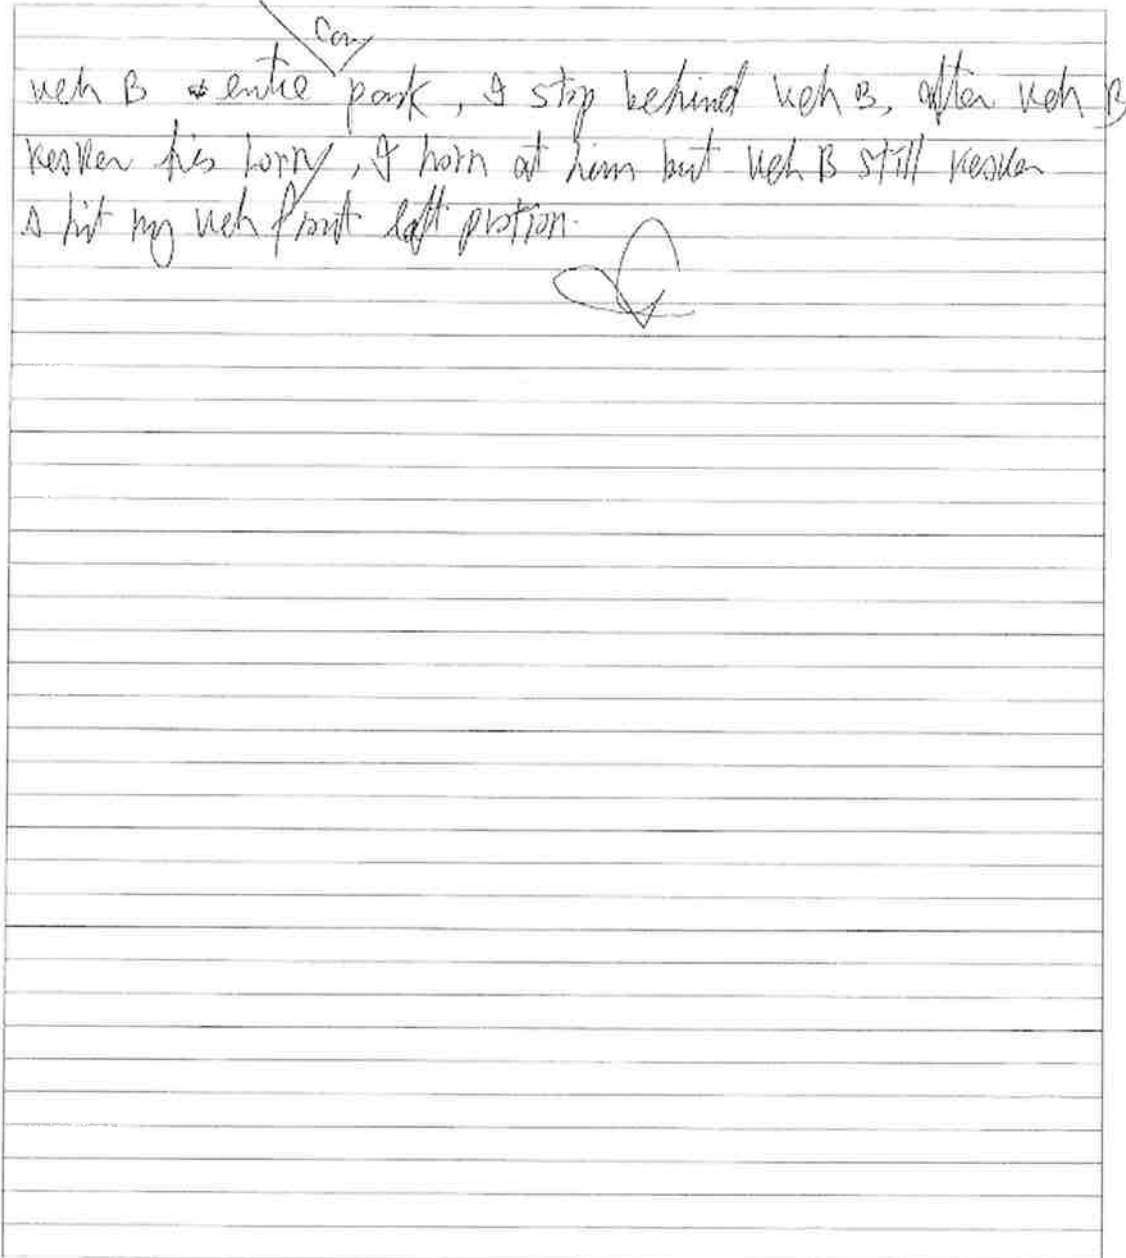 car
veh B entre park, I stop behind veh B, after veh B
his lorry, I horn at him but veh B still
& hit my veh front left portion.